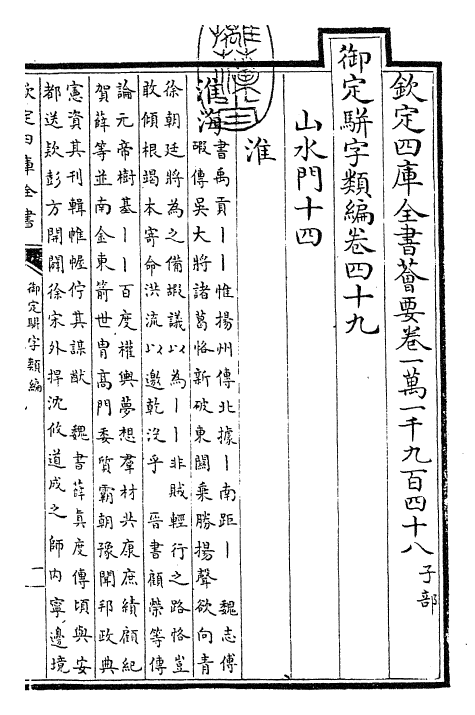 欽定四庫全書薈要卷一萬一千九百四十八子部
御定駢字類編卷四十九
山水門十四
淮
淮海
書禹貢丨丨惟揚州傳北據丨南距丨 魏志傅
嘏傳吳大將諸葛恪新破東關乗勝揚聲欲向青
徐朝廷將為之備嘏議以為丨丨非賊輕行之路恪豈
敢傾根竭本寄命洪流以邀乾沒乎 晉書顧榮等傳
論元帝樹基丨丨百度權輿夢想羣材共康庶績顧紀
賀薛等並南金東箭世胄髙門委質霸朝豫聞邦政典
憲資其刋輯帷幄佇其謀猷 魏書薛真度傳頃與安
都送欵彭方開闢徐宋外捍沈攸道成之師内寧邊境
欽定四庫全書
御定駢字類編
一